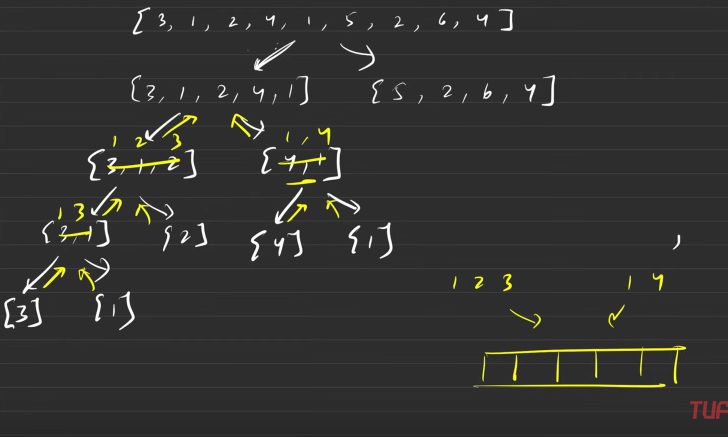 [3, 1, 2, 4, 1, 5, 2, 6, 4]
[3, 1, 2, 4, 1] [5, 2, 6, 4]
1 2 3 1, 4
[3, 1, 2] [4, 1]
1 3
[3, 1] [2] [4] [1]
,
1 2 3 1 4
[3] [1]
TUF